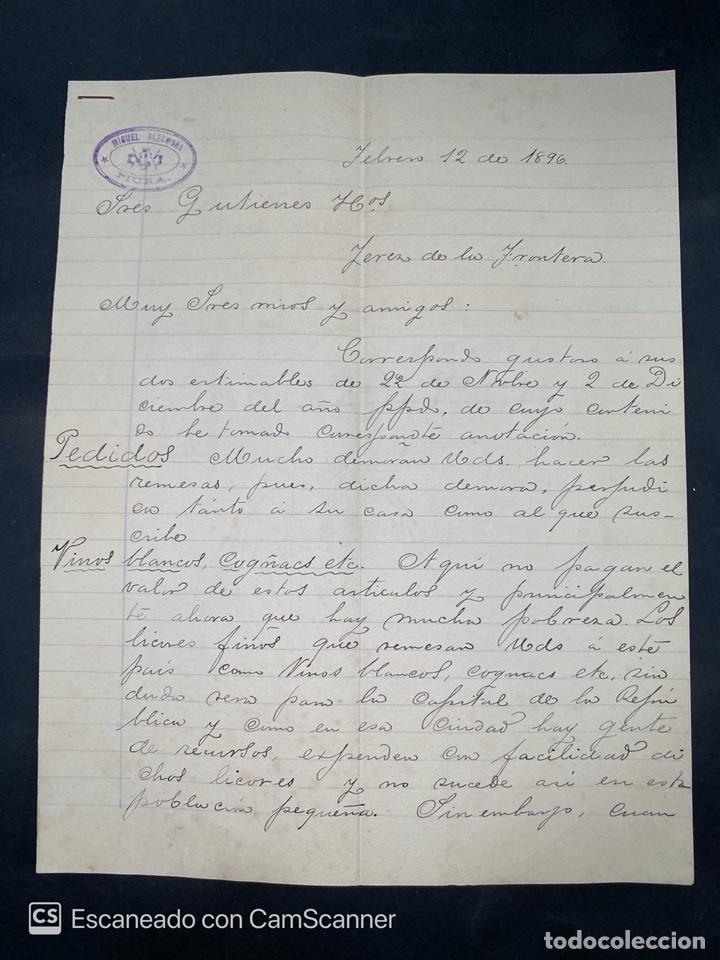 MIGUEL ALZAMORA
PIURA.
Febrero 12 de 1896.
Sres Gutierres Hos
Jerez de la Frontera.
Muy Sres mios y amigos:
Correspondo gustoso á sus
dos estimables de 22 de Nvbre y 2 de Di
ciembre del año ppdo, de cuyo conteni
do he tomado correspondte anotación.
Pedidos Mucho demoran Uds. hacer las
remesas, pues, dicha demora, perjudi
ca tánto á su casa como al que sus-
cribe
Vinos blancos, cogñacs etc. Aquí no pagan el
valor de estos articulos y principalmen
te ahora que hay mucha pobreza. Los
licores finos que remesan Uds á este
país como Vinos blancos, cognacs etc, sin
duda sera para la capital de la Repú
blica y como en esa ciudad hay gente
de recursos, expenden con facilidad di
chos licores y no sucede asi en esta
población pequeña. Sin embargo, cuan
CS Escaneado con CamScanner
todocoleccion